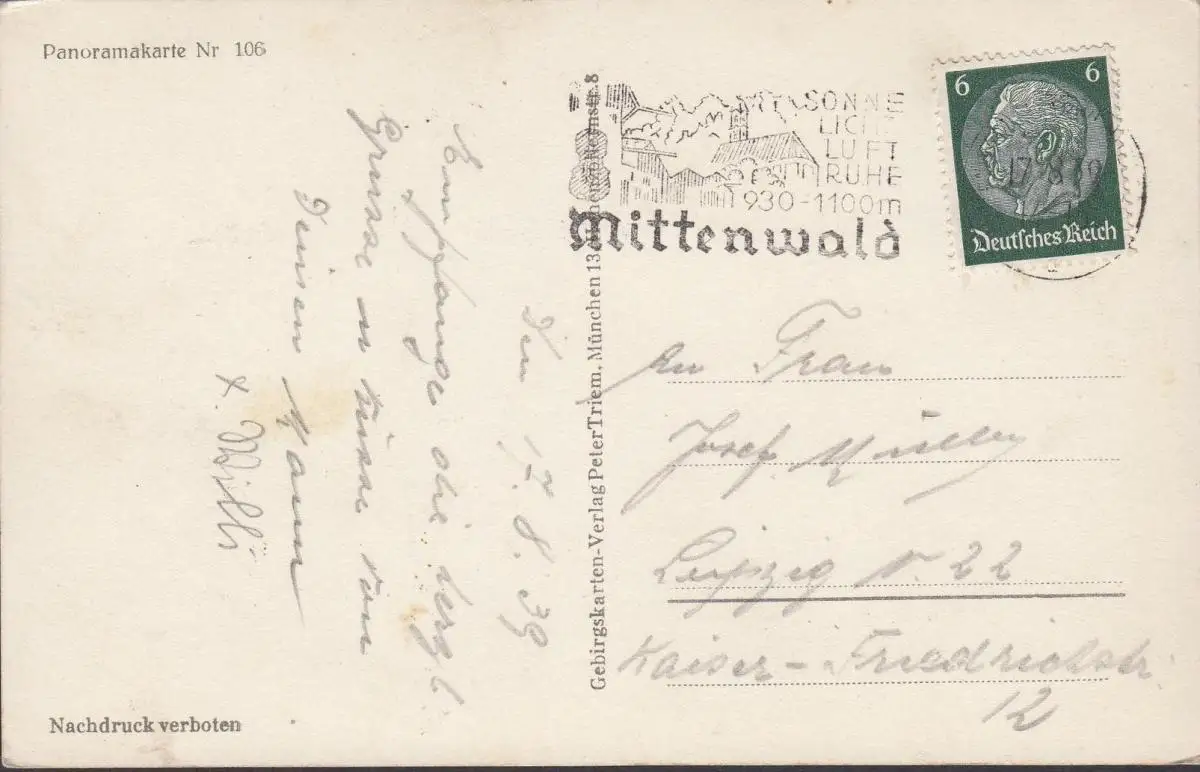 Panoramakarte Nr 106
SONNE
LICHT
LUFT
RUHE
930-1100m
Mittenwald
6 6
Deutsches Reich
17.8.39
Gebirgskarten-Verlag Peter Triem, München 13
Den 17.8.39
Empfange die herzl.
Grüsse u Küsse von
Deinen Mann
u. Willi
An Frau
Josef Müller
Leipzig N. 22
Kaiser-Friedrichstr
12
Nachdruck verboten